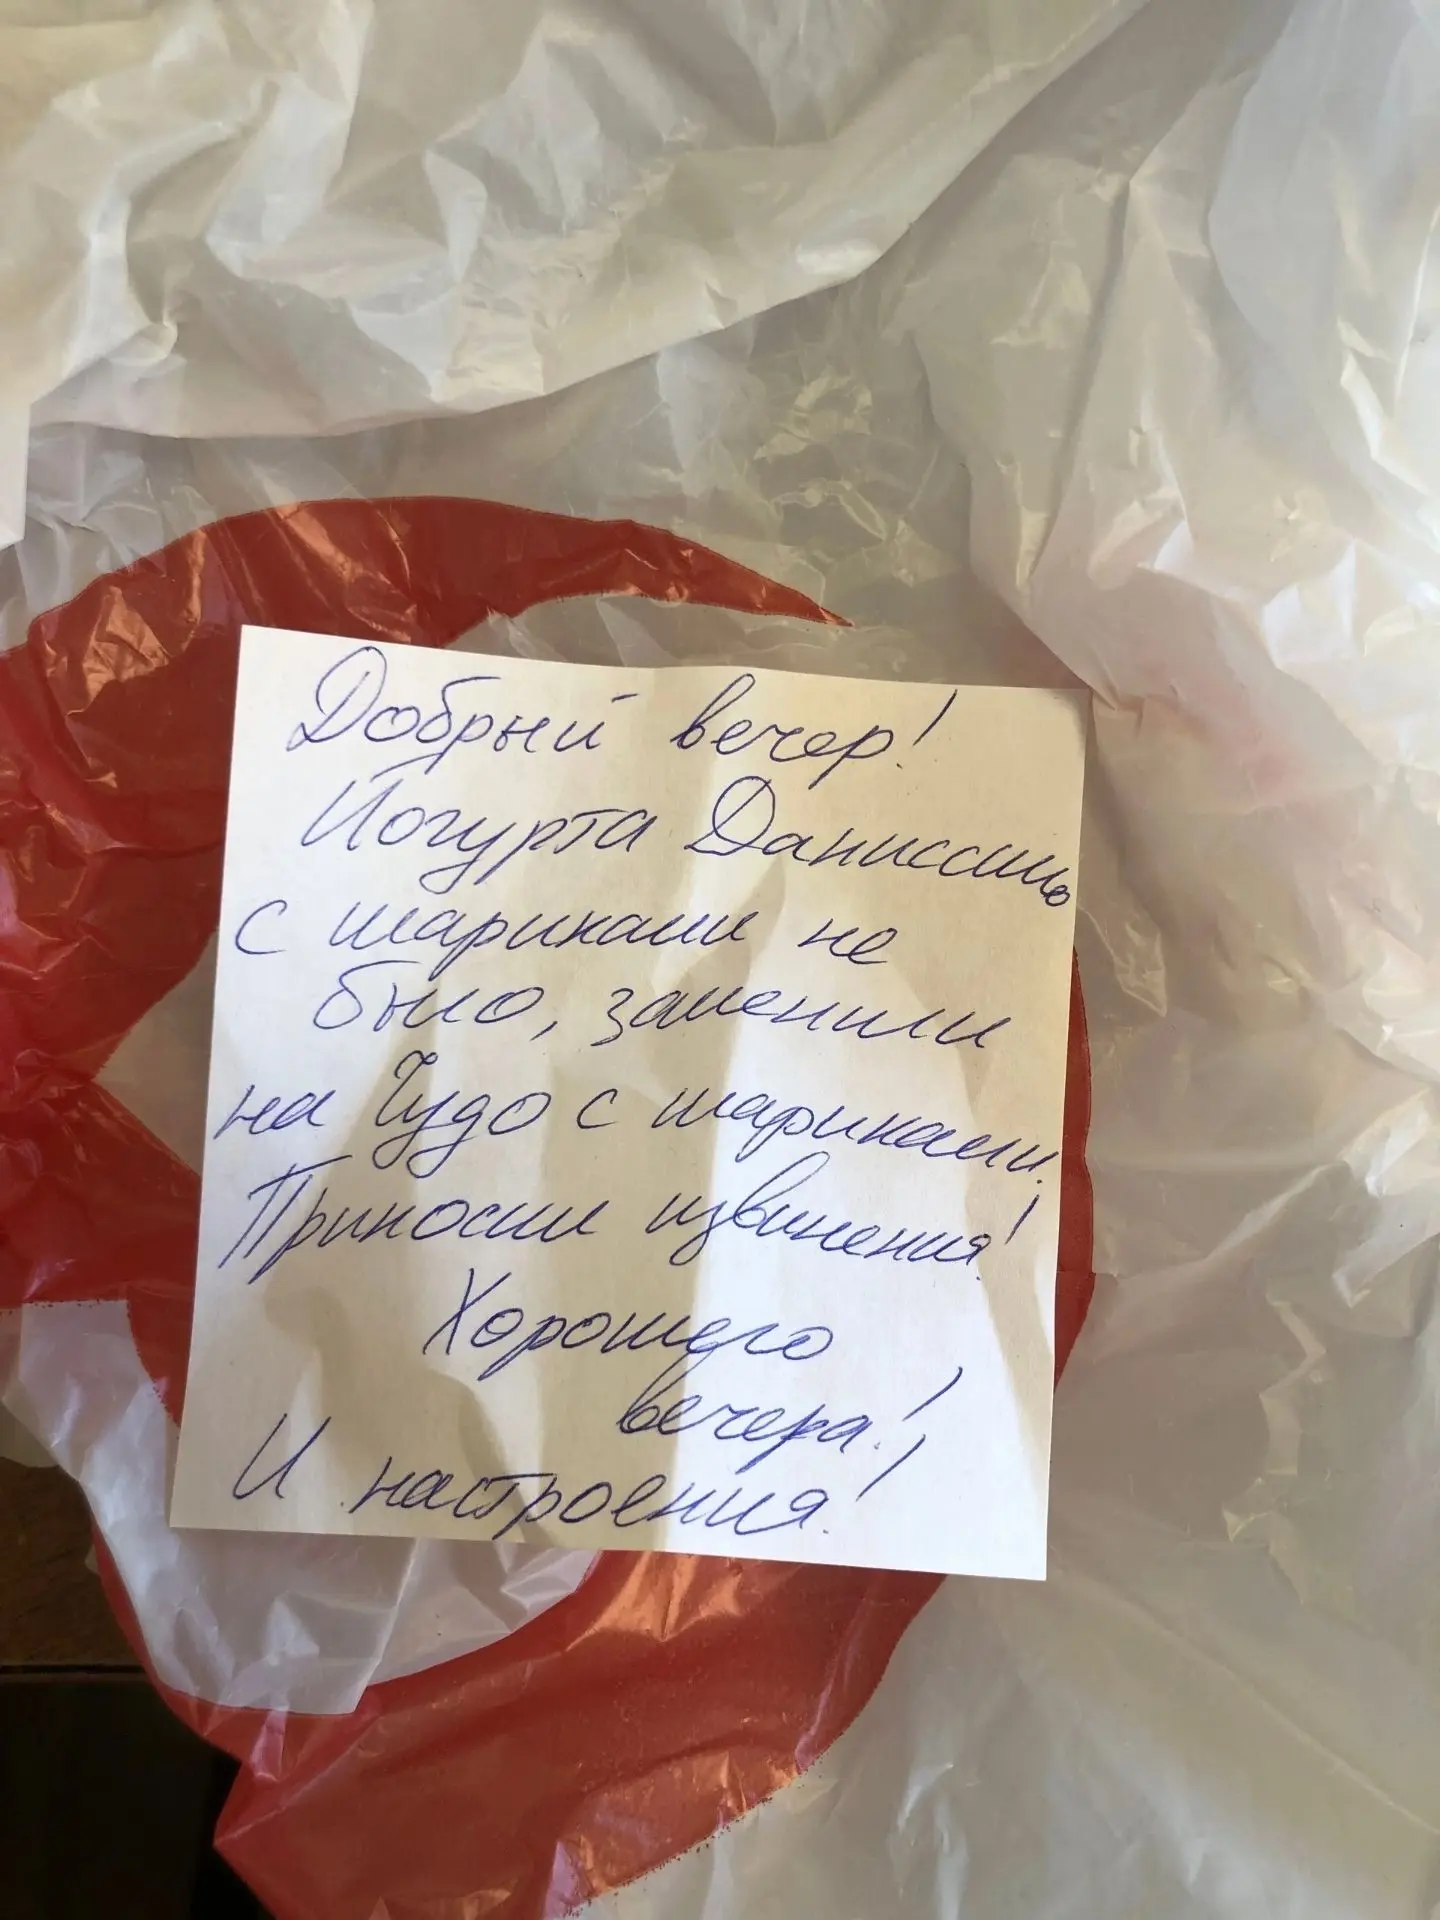 Добрый вечер!
Йогурта Даниссимо
с шариками не
было, заменили
на Чудо с шариками.
Приносим извинения!
Хорошего
вечера!
И настроения!